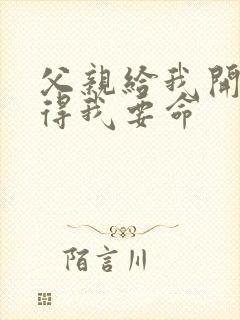 父親給我開
得我要命
陌言川